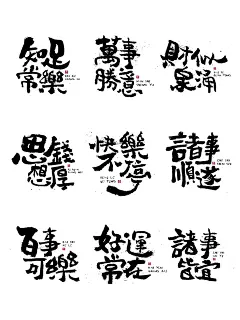 知足
常樂
萬事
勝意
財似
泉涌
思錢
想厚
快樂
不停
諸事
順遂
百事
可樂
好運
常在
諸事
皆宜